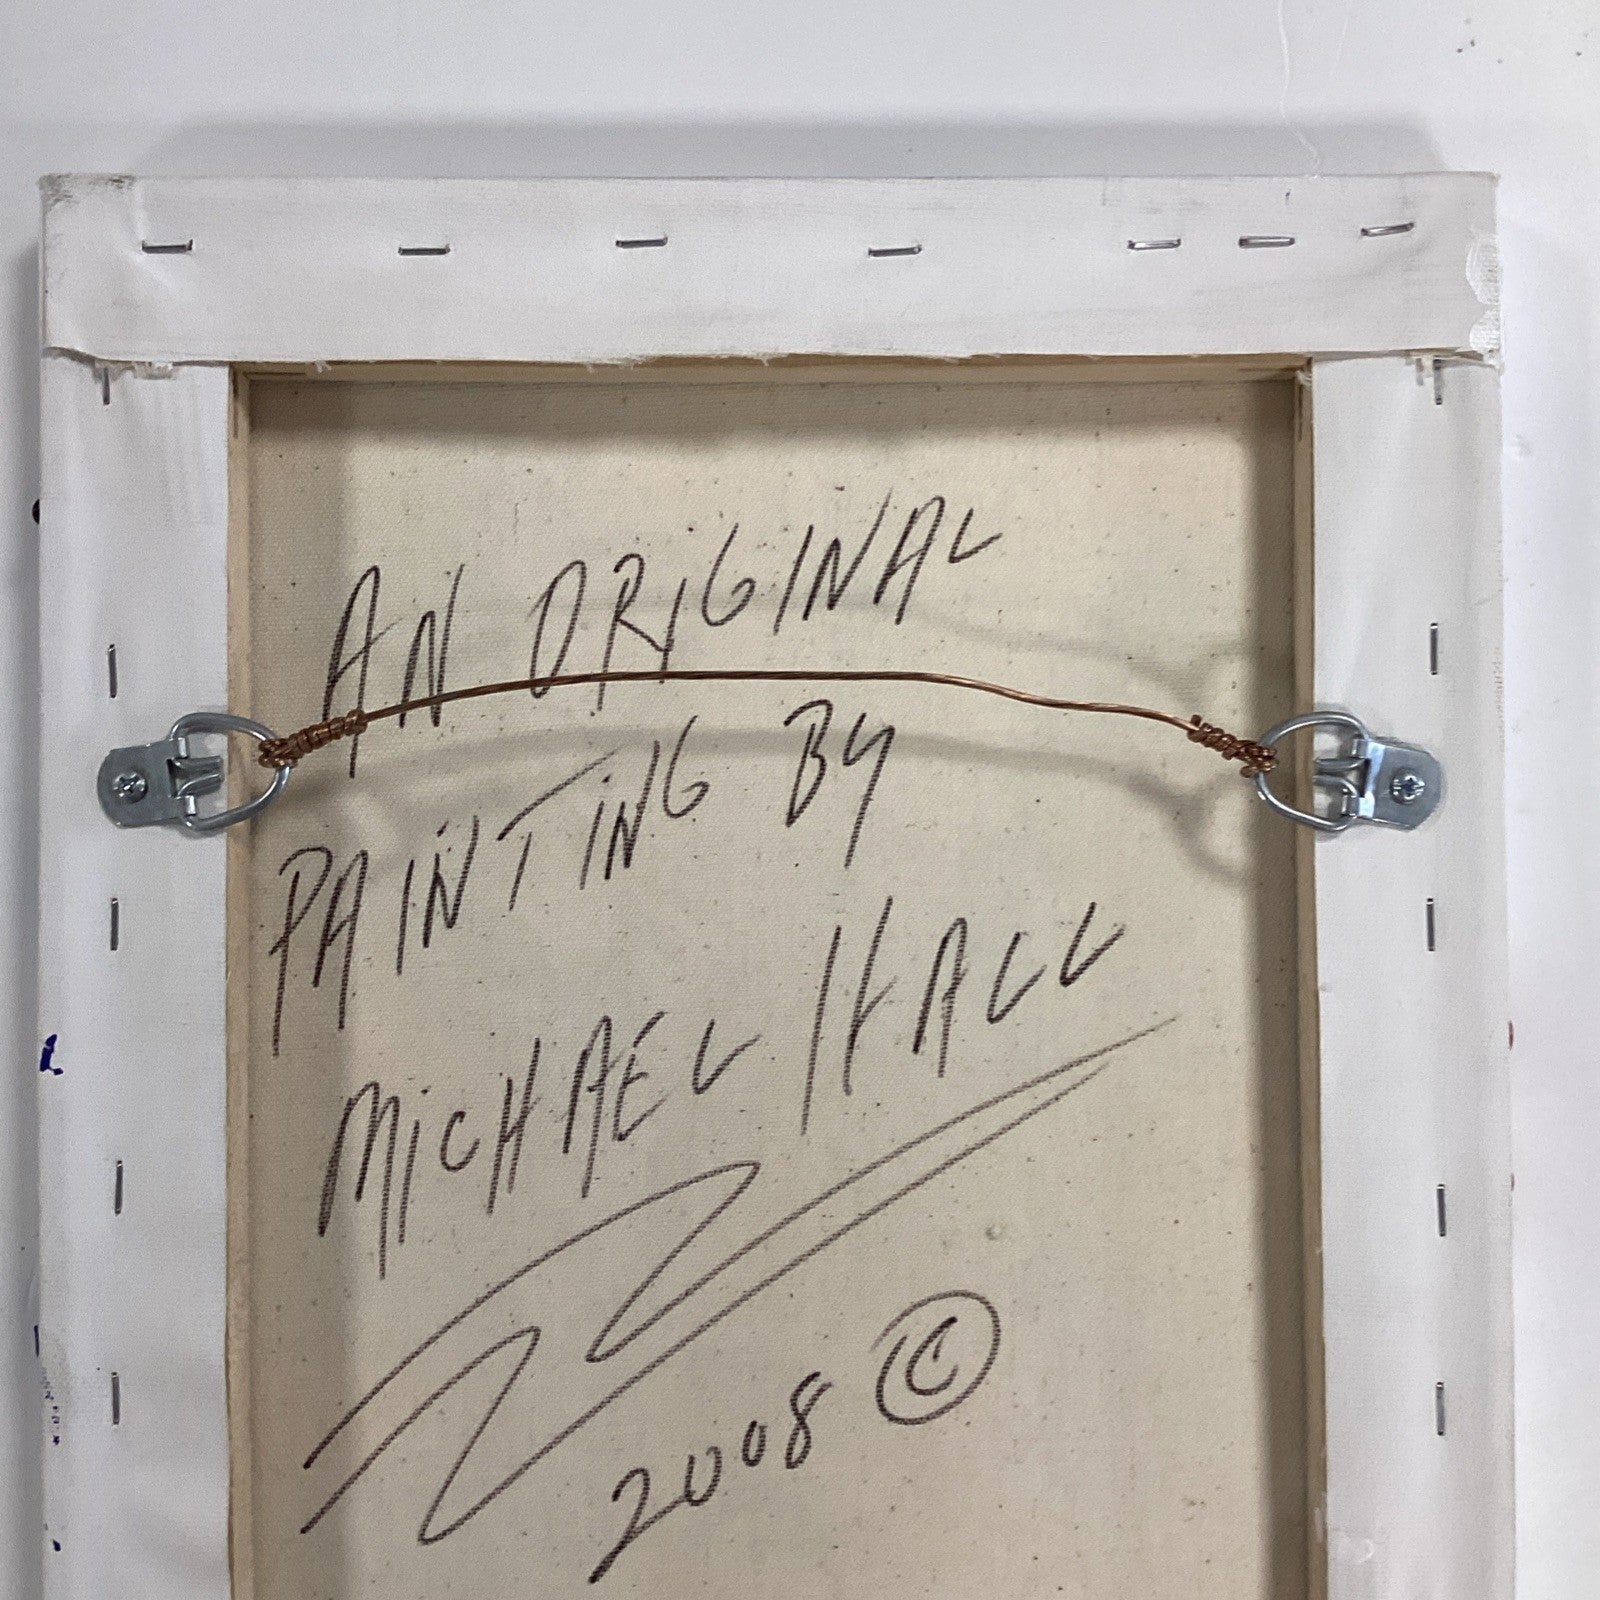 AN ORiGINAL
PAINTiNG BY
MiCHAEL HALL
2008 ©